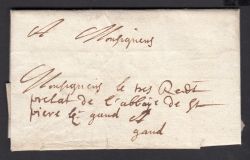 A Monsigneur
Monsigneur le tres Redt
prelat de l'abbaye de St
piere lz gand A
gand